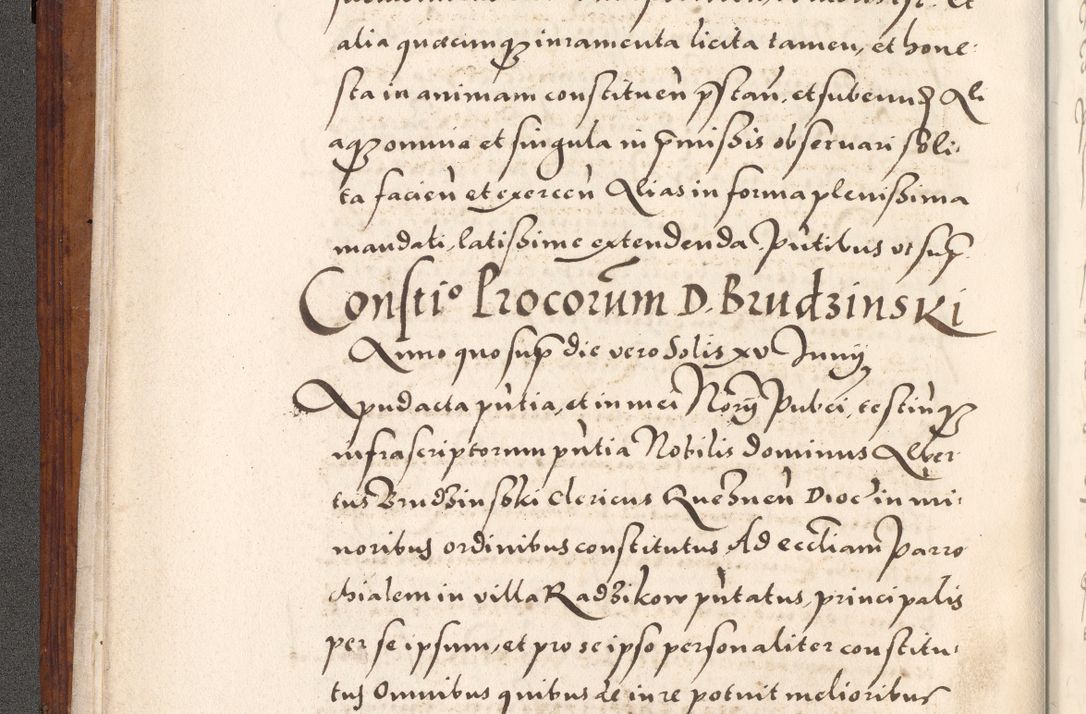 alia quæcunq iuramenta licita tamen, et hone-
sta in animam constituen̄ pstan̄, et subeund Ali
aq omnia et singula in pmißis obseruari soli-
ta facien̄ et exercen̄ Alias in forma plenißima
mandati, latißime extendenda. Pn̄tibus vt sup
Constio Procorum D. Brudzinski
Anno quo sup die vero Solis xv Junij
Apud acta pn̄tia, et in mei Norij Pubci, testiuq
infrascriptorum pn̄tia Nobilis dominus Alber
tus Brudzinski Clericus Gneznen̄ Dioc in mi-
noribus ordinibus constitutus Ad eccliam Parro
chialem in villa Radzikow pn̄tatus, principalis
per se ipsum, et pro se ipso personaliter constitu-
tus Omnibus quibus de iure potuit melioribus